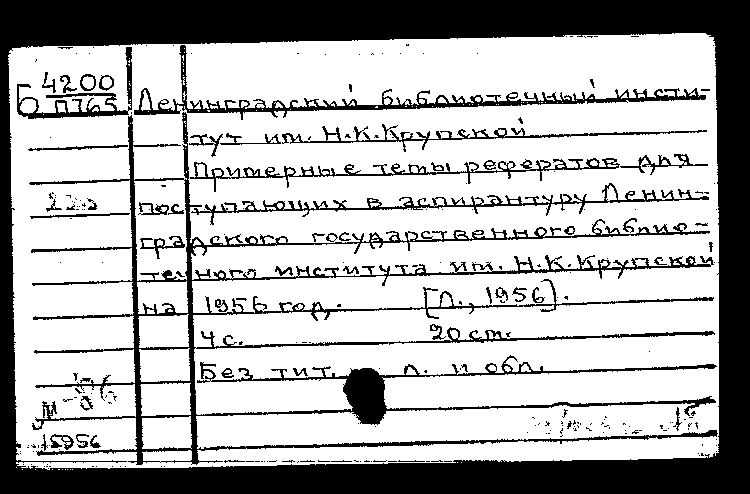 Б 4200
П765 Ленинградский библиотечный инсти-
тут им. Н.К.Крупской
Примерные темы рефератов для
поступающих в аспирантуру Ленин-
градского государственного библио-
течного института им. Н.К.Крупской
на 1956 год. [Л., 1956].
4 с. 20 см.
Без тит. л. и обл.